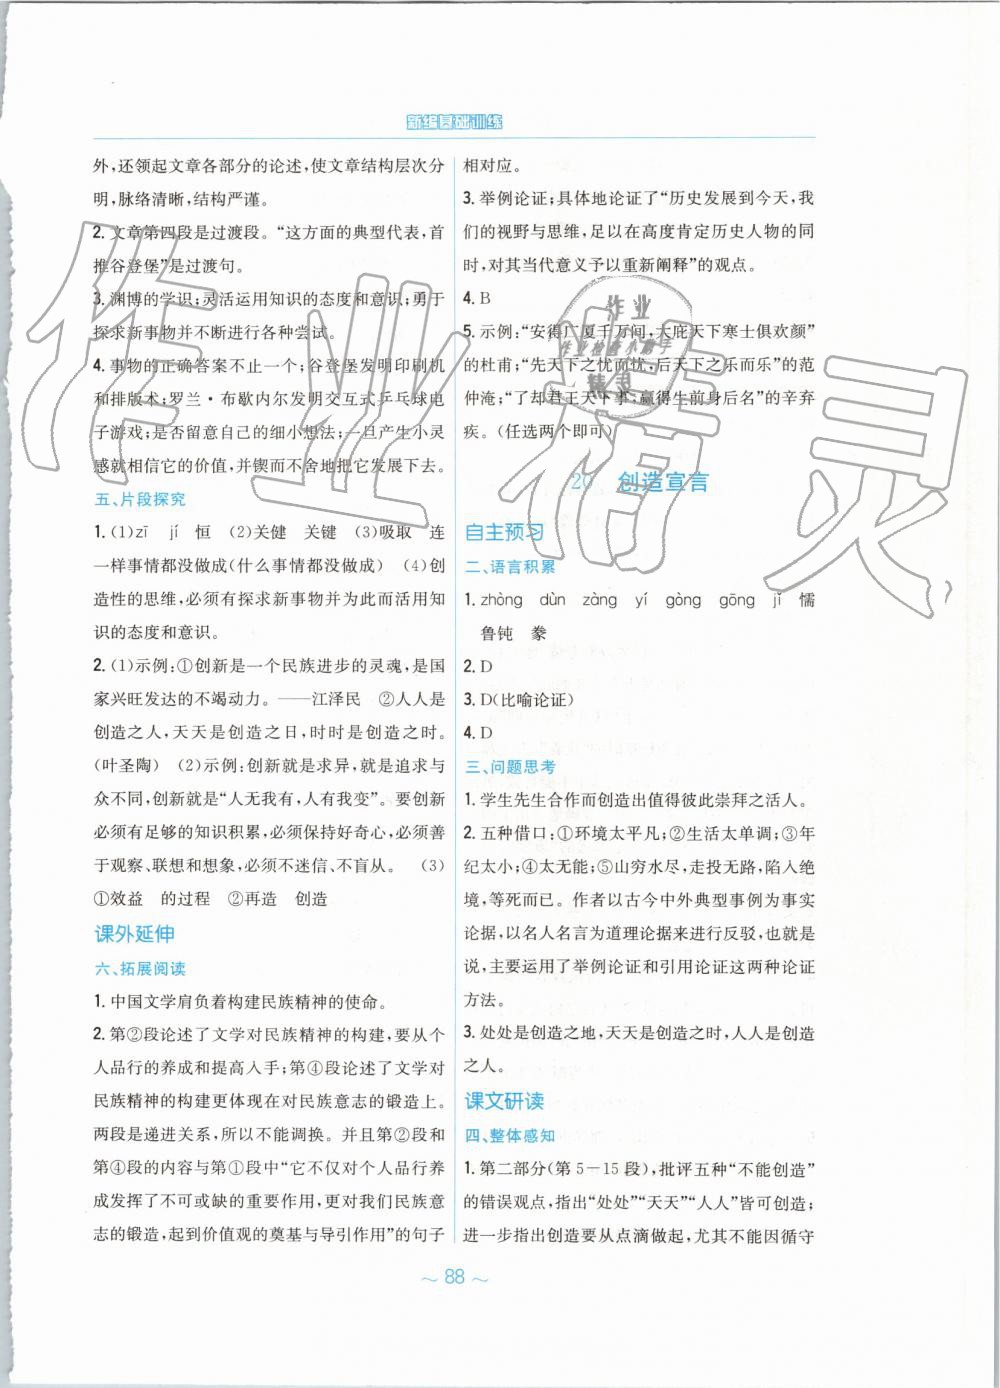 新编基础训练
外,还领起文章各部分的论述,使文章结构层次分
明,脉络清晰,结构严谨。
2. 文章第四段是过渡段。“这方面的典型代表,首
推谷登堡”是过渡句。
3. 渊博的学识;灵活运用知识的态度和意识;勇于
探求新事物并不断进行各种尝试。
4. 事物的正确答案不止一个;谷登堡发明印刷机
和排版术;罗兰·布歇内尔发明交互式乒乓球电
子游戏;是否留意自己的细小想法;一旦产生小灵
感就相信它的价值,并锲而不舍地把它发展下去。
五、片段探究
1. (1)zī jí 恒 (2)关健 关键 (3)吸取 连
一样事情都没做成(什么事情都没做成) (4)创
造性的思维,必须有探求新事物并为此而活用知
识的态度和意识。
2. (1)示例:①创新是一个民族进步的灵魂,是国
家兴旺发达的不竭动力。——江泽民 ②人人是
创造之人,天天是创造之日,时时是创造之时。
(叶圣陶) (2)示例:创新就是求异,就是追求与
众不同,创新就是“人无我有,人有我变”。要创新
必须有足够的知识积累,必须保持好奇心,必须善
于观察、联想和想象,必须不迷信、不盲从。 (3)
①效益 的过程 ②再造 创造
课外延伸
六、拓展阅读
1. 中国文学肩负着构建民族精神的使命。
2. 第②段论述了文学对民族精神的构建,要从个
人品行的养成和提高入手;第④段论述了文学对
民族精神的构建更体现在对民族意志的锻造上。
两段是递进关系,所以不能调换。并且第②段和
第④段的内容与第①段中“它不仅对个人品行养
成发挥了不可或缺的重要作用,更对我们民族意
志的锻造,起到价值观的奠基与导引作用”的句子
相对应。
3. 举例论证;具体地论证了“历史发展到今天,我
们的视野与思维,足以在高度肯定历史人物的同
时,对其当代意义予以重新阐释”的观点。
4. B
5. 示例:“安得广厦千万间,大庇天下寒士俱欢颜”
的杜甫;“先天下之忧而忧,后天下之乐而乐”的范
仲淹;“了却君王天下事,赢得生前身后名”的辛弃
疾。(任选两个即可)
20 创造宣言
自主预习
二、语言积累
1. zhòng dùn zàng yí gòng gōng jǐ 懦
鲁钝 豢
2. D
3. D(比喻论证)
4. D
三、问题思考
1. 学生先生合作而创造出值得彼此崇拜之活人。
2. 五种借口:①环境太平凡;②生活太单调;③年
纪太小;④太无能;⑤山穷水尽,走投无路,陷入绝
境,等死而已。作者以古今中外典型事例为事实
论据,以名人名言为道理论据来进行反驳,也就是
说,主要运用了举例论证和引用论证这两种论证
方法。
3. 处处是创造之地,天天是创造之时,人人是创造
之人。
课文研读
四、整体感知
1. 第二部分(第5-15段),批评五种“不能创造”
的错误观点,指出“处处”“天天”“人人”皆可创造;
进一步指出创造要从点滴做起,尤其不能因循守
~ 88 ~
作业精灵
作业
作业检查小助手
精灵